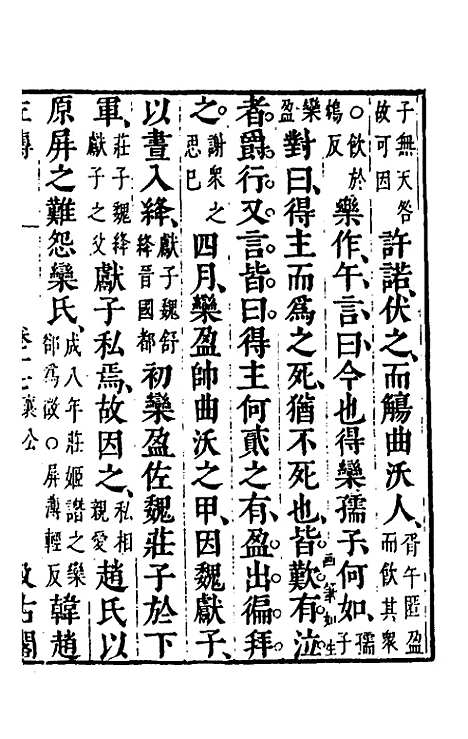 子無天咎
故可因
許諾、伏之、而觴曲沃人、
胥午匿盈
而飲其衆
○飲於
鴆反
樂作、午言曰、今也得欒孺子何如、
孺
子
欒
盈
對曰、得主而爲之死、猶不死也、皆歎有泣
者。爵行又言、皆曰、得主何貳之有、盈出徧拜
之。
謝衆之
思已
四月、欒盈帥曲沃之甲、因魏獻子、
以晝入絳、
獻子魏舒
絳晉國都
初欒盈佐魏莊子於下
軍、
莊子魏絳
獻子之父
獻子私焉、故因之、
私相
親愛
趙氏以
原屏之難怨欒氏、
成八年莊姬譖之欒
郤爲徵○屏薄輕反
韓趙